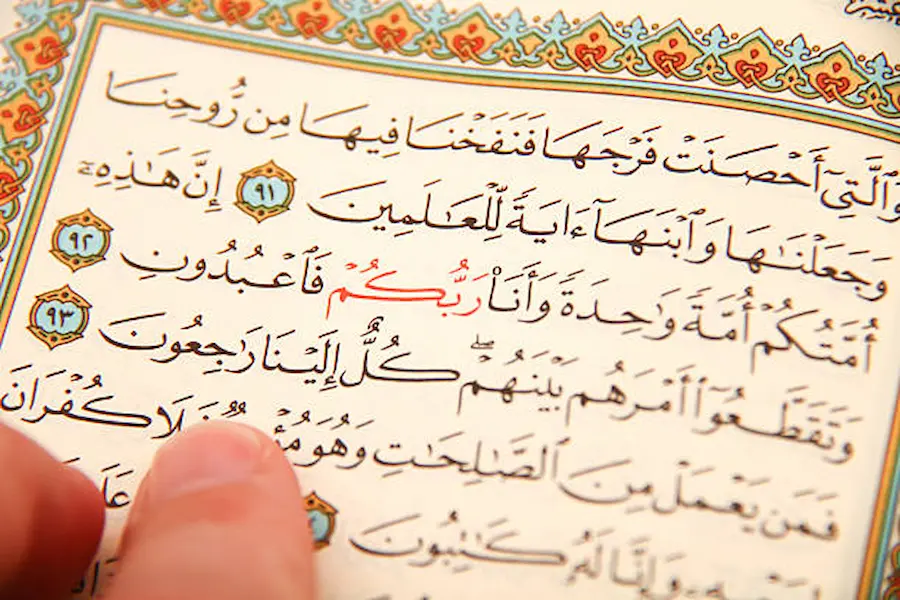 وَٱلَّتِىٓ أَحْصَنَتْ فَرْجَهَا فَنَفَخْنَا فِيهَا مِن رُّوحِنَا
وَجَعَلْنَٰهَا وَٱبْنَهَآ ءَايَةً لِّلْعَٰلَمِينَ ٩١ إِنَّ هَٰذِهِۦٓ
أُمَّتُكُمْ أُمَّةً وَٰحِدَةً وَأَنَا۠ رَبُّكُمْ فَٱعْبُدُونِ ٩٢
وَتَقَطَّعُوٓا۟ أَمْرَهُم بَيْنَهُمْ ۖ كُلٌّ إِلَيْنَا رَٰجِعُونَ ٩٣
فَمَن يَعْمَلْ مِنَ ٱلصَّٰلِحَٰتِ وَهُوَ فَلَا كُفْرَانَ
وَإِنَّا لَهُۥ كَٰتِبُونَ